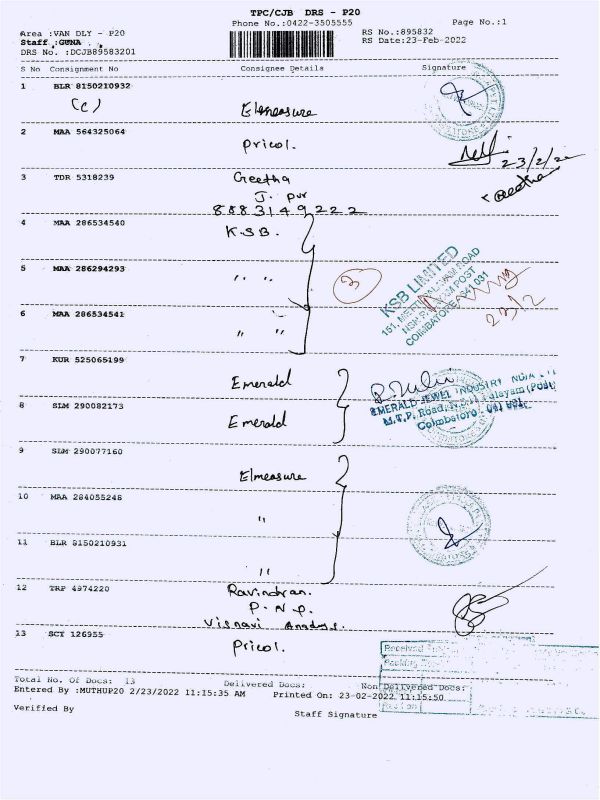 TPC/CJB DRS - P20
Phone No.:0422-3505555
Page No.:1
Area :VAN DLY - P20
RS No.:895832
Staff :GUNA
RS Date:23-Feb-2022
DRS No. :DCJB89583201
S No Consignment No Consignee Details Signature
1 BLR 8150210932
(C) Elmeasure
2 MAA 564325064
Pricol.
23/2/22
3 TDR 5318239 Geetha
J. Pur
8883149222
Geetha
4 MAA 286534540 K.S.B.
5 MAA 286294293
" "
3
KSB LIMITED
COIMBATORE-641 031
23/2
6 MAA 286534541
" "
7 KUR 525065199
Emerald
EMERALD JEWEL INDUSTRY INDIA
M.T.P. Road,
Coimbatore
8 SLM 290082173
Emerald
9 SLM 290077160
Elmeasure
10 MAA 284055248
"
11 BLR 8150210931
"
12 TRP 4974220 Ravindran.
P.N.P.
13 SCT 126955
Pricol.
Received
Total No. Of Docs: 13 Delivered Docs: Non Delivered Docs:
Entered By :MUTHUP20 2/23/2022 11:15:35 AM Printed On: 23-02-2022 11:15:50
Verified By
Staff Signature